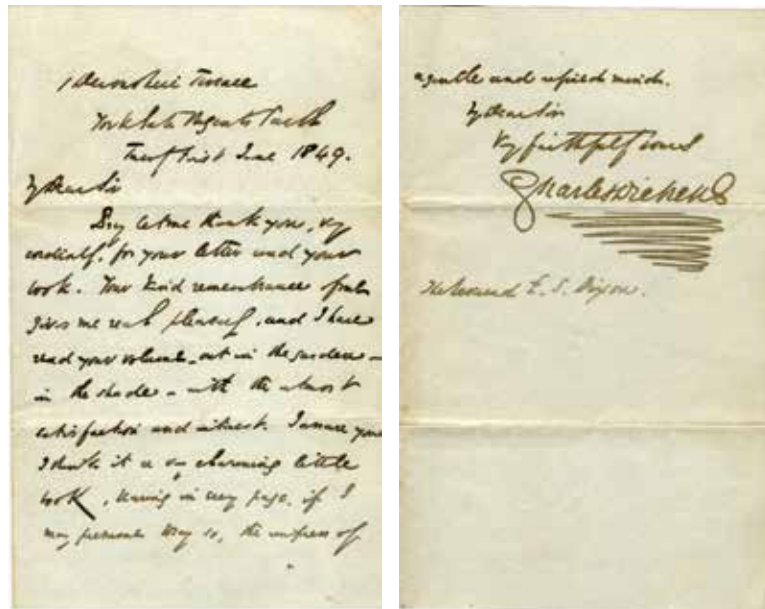 1 Devonshire Terrace
York Gate Regents Park
First June 1849.
My Dear Sir
Pray let me thank you, very
cordially, for your letter and your
book. Your kind remembrance of me
gives me real pleasure, and I have
read your volume, out in the garden –
in the shade – with the utmost
satisfaction and interest. I assure you
I think it is a charming little
book, having in every page, if I
may presume to say so, the impress of
a gentle and refined mind.
My Dear Sir
Very faithfully yours
Charles Dickens
The Reverend E. S. Dixon.